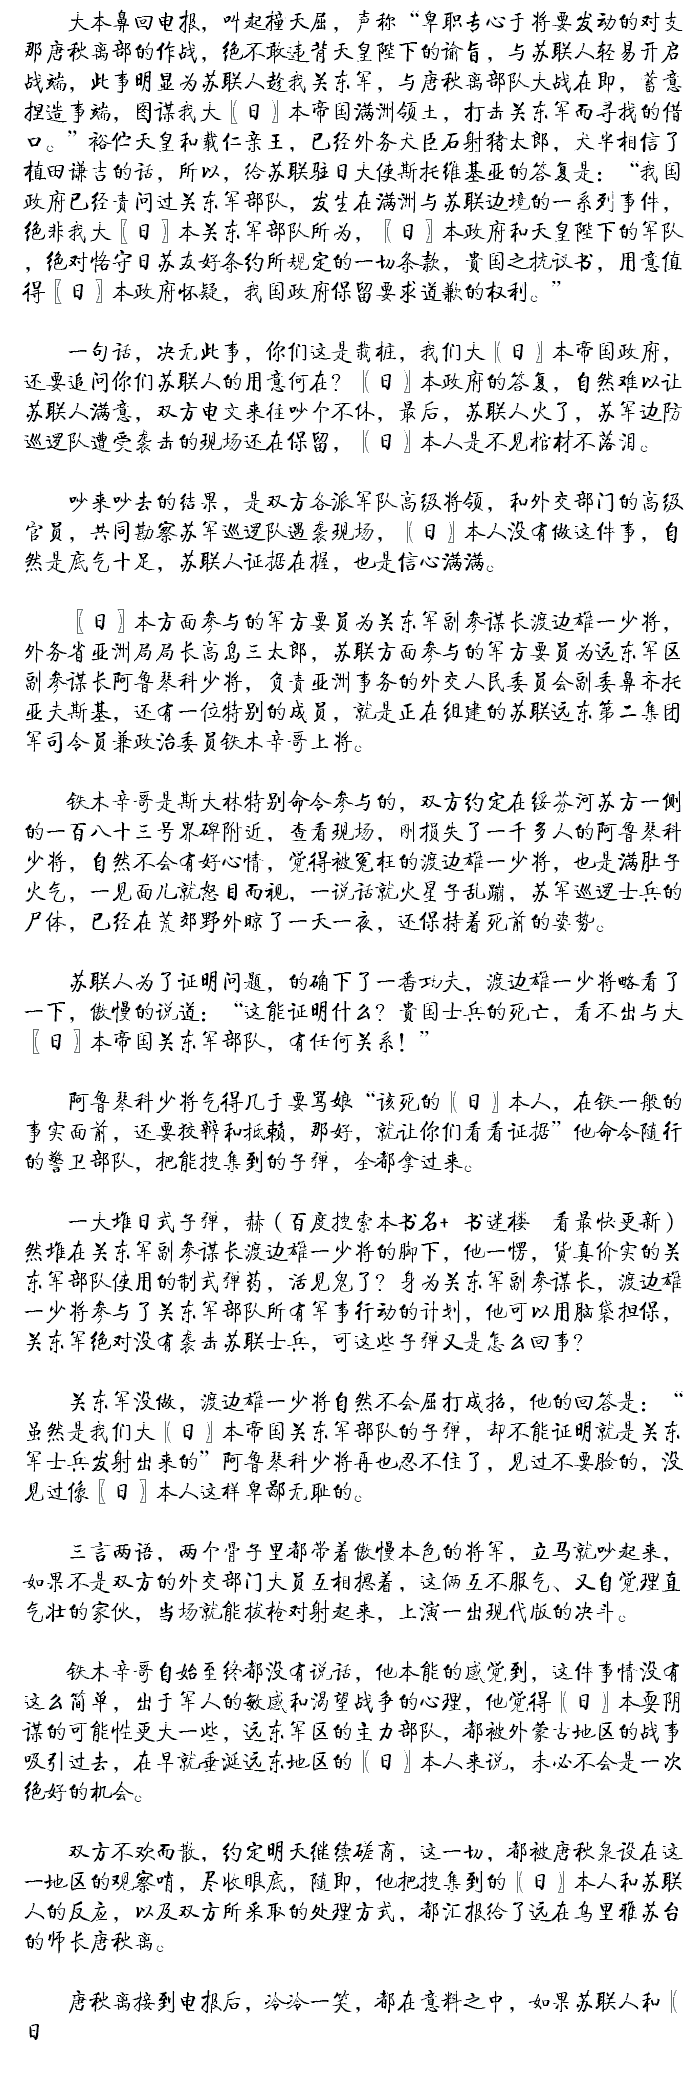 大本鼻回电报，叫起撞天屈，声称“卑职专心于将要发动的对支
那唐秋离部的作战，绝不敢违背天皇陛下的谕旨，与苏联人轻易开启
战端，此事明显为苏联人趁我关东军，与唐秋离部队大战在即，蓄意
捏造事端，图谋我大〖日〗本帝国满洲领土，打击关东军而寻找的借
口。”裕伫天皇和载仁亲王，已经外务犬臣石射猪太郎，犬半相信了
植田谦吉的话，所以，给苏联驻日大使斯托维基亚的答复是：“我国
政府已经责问过关东军部队，发生在满洲与苏联边境的一系列事件，
绝非我大〖日〗本关东军部队所为，〖日〗本政府和天皇陛下的军队
，绝对恪守日苏友好条约所规定的一切条款，贵国之抗议书，用意值
得〖日〗本政府怀疑，我国政府保留要求道歉的权利。”
一句话，决无此事，你们这是栽桩，我们大〖日〗本帝国政府，
还要追问你们苏联人的用意何在？〖日〗本政府的答复，自然难以让
苏联人满意，双方电文来往吵个不休，最后，苏联人火了，苏军边防
巡逻队遭受袭击的现场还在保留，〖日〗本人是不见棺材不落泪。
吵来吵去的结果，是双方各派军队高级将领，和外交部门的高级
官员，共同勘察苏军巡逻队遇袭现场，〖日〗本人没有做这件事，自
然是底气十足，苏联人证据在握，也是信心满满。
〖日〗本方面参与的军方要员为关东军副参谋长渡边雄一少将，
外务省亚洲局局长高岛三太郎，苏联方面参与的军方要员为远东军区
副参谋长阿鲁琴科少将，负责亚洲事务的外交人民委员会副委鼻齐托
亚夫斯基，还有一位特别的成员，就是正在组建的苏联远东第二集团
军司令员兼政治委员铁木辛哥上将。
铁木辛哥是斯大林特别命令参与的，双方约定在绥芬河苏方一侧
的一百八十三号界碑附近，查看现场，刚损失了一千多人的阿鲁琴科
少将，自然不会有好心情，觉得被冤枉的渡边雄一少将，也是满肚子
火气，一见面儿就怒目而视，一说话就火星子乱蹦，苏军巡逻士兵的
尸体，已经在荒郊野外晾了一天一夜，还保持着死前的姿势。
苏联人为了证明问题，的确下了一番功夫，渡边雄一少将略看了
一下，傲慢的说道：“这能证明什么？贵国士兵的死亡，看不出与大
〖日〗本帝国关东军部队，有任何关系！”
阿鲁琴科少将气得几乎要骂娘“该死的〖日〗本人，在铁一般的
事实面前，还要狡辩和抵赖，那好，就让你们看看证据”他命令随行
的警卫部队，把能搜集到的子弹，全都拿过来。
一大堆日式子弹，赫（百度搜索本书名+ 书迷楼 看最快更新）
然堆在关东军副参谋长渡边雄一少将的脚下，他一愣，货真价实的关
东军部队使用的制式弹药，活见鬼了？身为关东军副参谋长，渡边雄
一少将参与了关东军部队所有军事行动的计划，他可以用脑袋担保，
关东军绝对没有袭击苏联士兵，可这些子弹又是怎么回事？
关东军没做，渡边雄一少将自然不会屈打成招，他的回答是：“
虽然是我们大〖日〗本帝国关东军部队的子弹，却不能证明就是关东
军士兵发射出来的”阿鲁琴科少将再也忍不住了，见过不要脸的，没
见过像〖日〗本人这样卑鄙无耻的。
三言两语，两个骨子里都带着傲慢本色的将军，立马就吵起来，
如果不是双方的外交部门大员互相摁着，这俩互不服气、又自觉理直
气壮的家伙，当场就能拔枪对射起来，上演一出现代版的决斗。
铁木辛哥自始至终都没有说话，他本能的感觉到，这件事情没有
这么简单，出于军人的敏感和渴望战争的心理，他觉得〖日〗本耍阴
谋的可能性更大一些，远东军区的主力部队，都被外蒙古地区的战事
吸引过去，在早就垂涎远东地区的〖日〗本人来说，未必不会是一次
绝好的机会。
双方不欢而散，约定明天继续磋商，这一切，都被唐秋泉设在这
一地区的观察哨，尽收眼底，随即，他把搜集到的〖日〗本人和苏联
人的反应，以及双方所采取的处理方式，都汇报给了远在乌里雅苏台
的师长唐秋离。
唐秋离接到电报后，冷冷一笑，都在意料之中，如果苏联人和〖
日